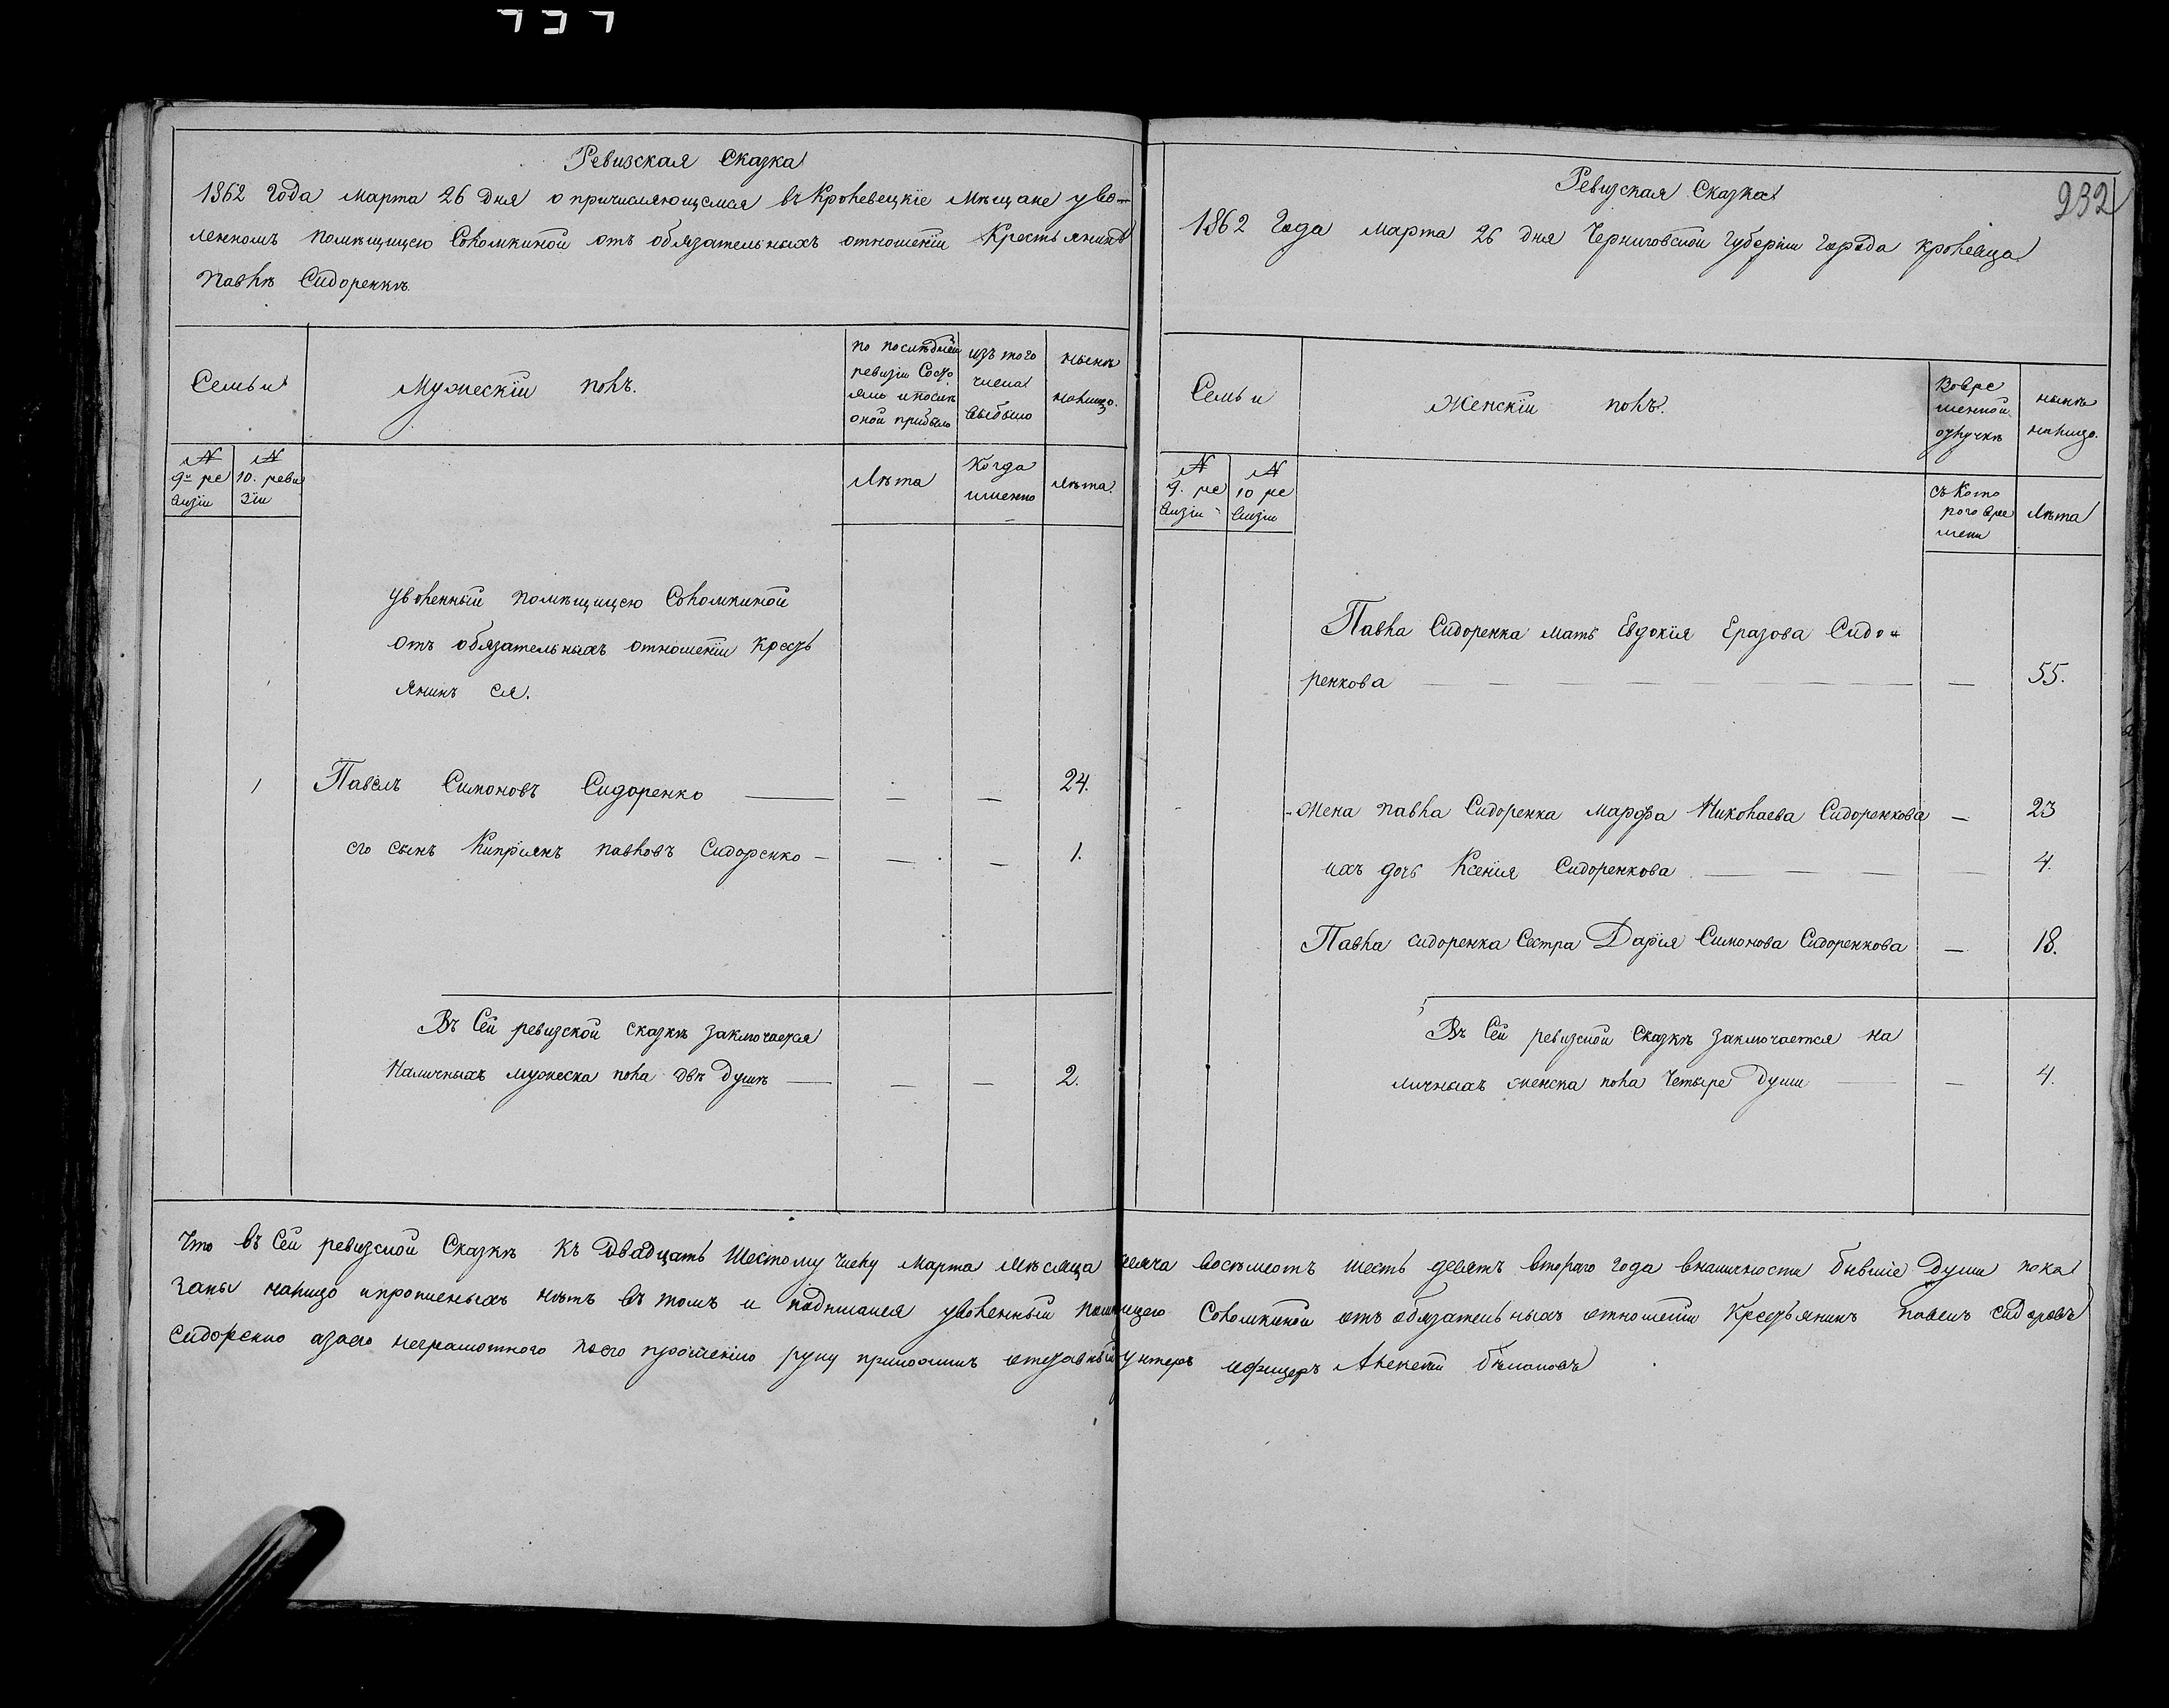 Ревизская Сказка
1862 Года марта 26 дня о причисляющемся въ Кролевецкіе Мѣщане уво-
ленномъ помѣщицею Соломкиной отъ обязательныхъ отношеніи Крестьянинѣ
Павлѣ Сидоренкѣ.
Семьи
Мужескіи полъ.
по послѣдней
ревизіи Состо
яло и послѣ
оной прибыло
изъ того
числа
выбыло
нынѣ
налицо.
N
9й ре
визіи
N
10. реви
зіи
Лѣта
Когда
именно
Лѣта.
уволенный помѣщицею Соломкиной
отъ обязательныхъ отношеніи крестъ
янинъ ся.
1
Павелъ Симоновъ Сидоренко
24.
его сынъ Кипріянъ павловъ Сидоренко
1.
Въ Сей ревизской сказкѣ заключается
Наличныхъ мужеска пола двѣ душѣ
2.
Ревизская Сказка
232
1862 Года марта 26 дня Черниговской Губерніи города кролевца
Семьи
Женскіи полъ.
Во вре
менной
отлучкѣ
нынѣ
налицо.
N
9. ре
визіи
N
10 ре
визіи
съ Кото
рого вре
мени
Лѣта
Павла Сидоренка мать Евдокія Еразова Сидо-
ренкова
55.
жена павла Сидоренка марфа Николаева Сидоренкова
23
ихъ дочь Ксенія Сидоренкова
4.
Павла сидоренка Сестра Дарія Симонова Сидоренкова
18.
Въ Сей ревизской Сказкѣ Заключается на
личныхъ женска пола Четыре души
4.
Что въ Сей ревизской Сказкѣ Къ Двадцать Шестому числу Марта мѣсяца восемсотъ шесть десятъ втораго года вналичности бывшіе души пока
заны налицо ипрописныхъ нѣтъ въ томъ и подписался уволенный Соломкиной отъ обязательныхъ отношеніи Крестьянинъ павелъ сидоровъ
Сидоренко азаего неграмотного поего прошенію руку приложилъ отставный унтеръ офицеръ Алексѣй